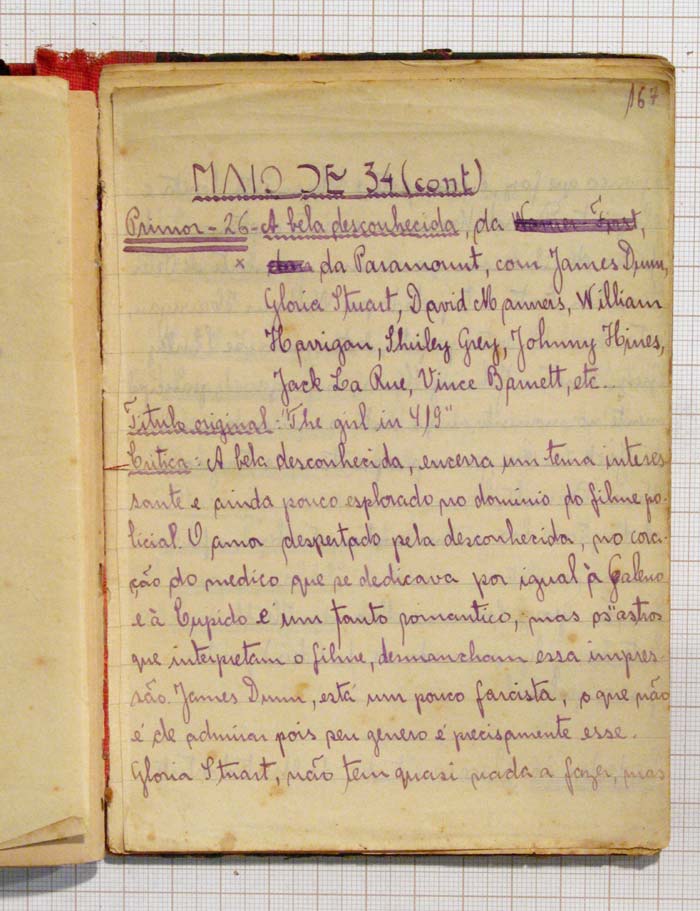 167
MAIO DE 34 (cont)
Primor - 26 - A bela desconhecida, da
x da Paramount, com James Dunn,
Gloria Stuart, David Manners, William
Harrigan, Shirley Grey, Johnny Hines,
Jack La Rue, Vince Barnett, etc...
Titulo original: "The girl in 419"
Critica: A bela desconhecida, encerra um tema interes-
sante e ainda pouco esplorado no dominio do filme po-
licial. O amor despertado pela desconhecida, no cora-
ção do medico que se dedicava por igual à Galeno
e à Cupido é um tanto romantico, mas os "astros
que interpretam o filme, desmancham essa impres-
são. James Dunn, está um pouco farcista, o que não
é de admirar pois seu genero é precisamente esse.
Gloria Stuart, não tem quasi nada a fazer, mas